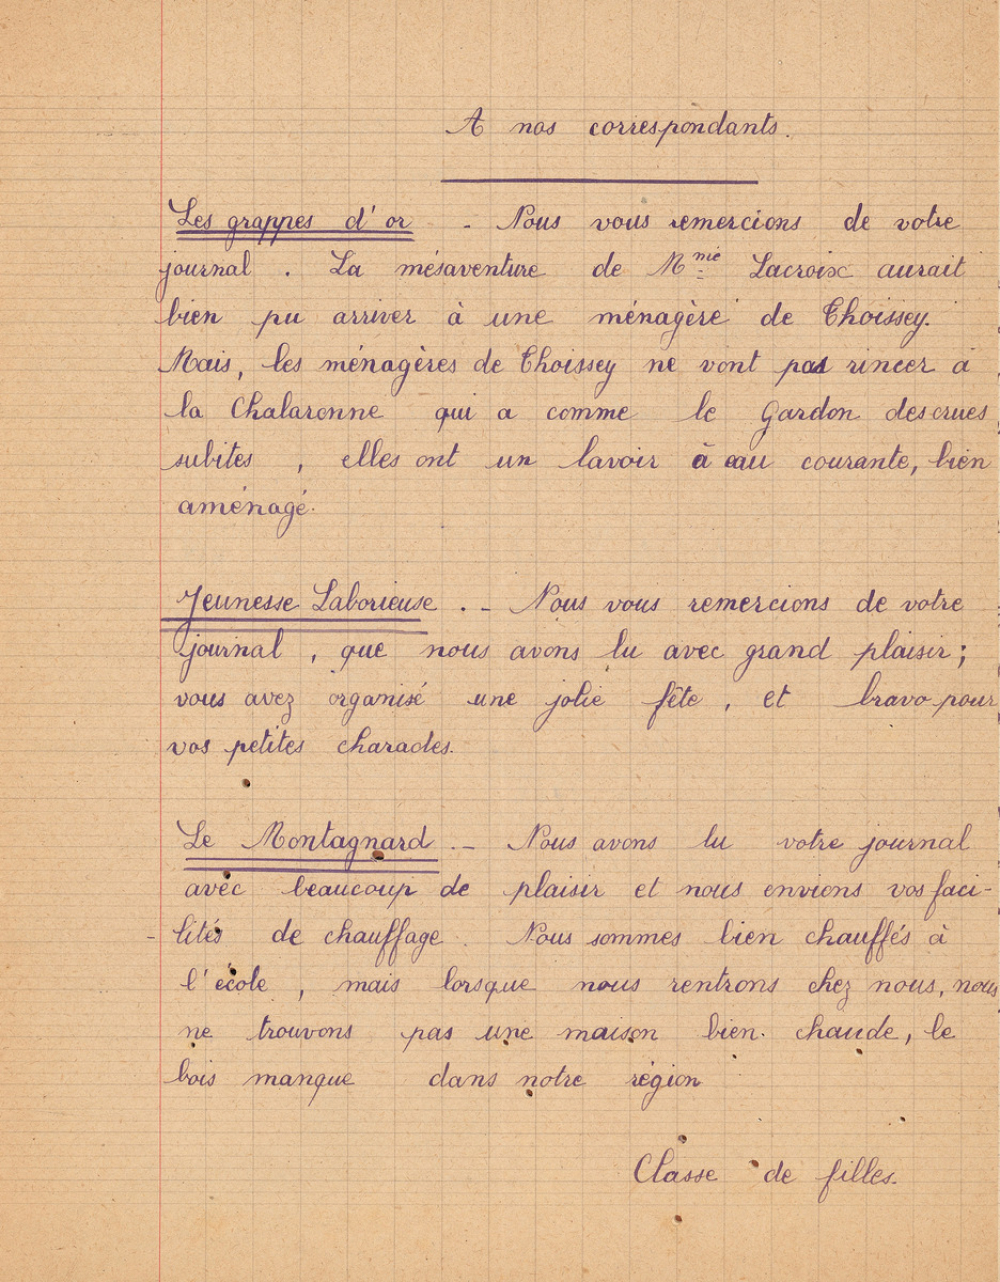 A nos correspondants.
Les grappes d'or - Nous vous remercions de votre
journal. La mésaventure de Mme Lacroix aurait
bien pu arriver à une ménagère de Thoissey.
Mais, les ménagères de Thoissey ne vont pas rincer à
la Chalaronne qui a comme le Gardon des crues
subites, elles ont un lavoir à eau courante, bien
aménagé.
Jeunesse Laborieuse. - Nous vous remercions de votre
journal, que nous avons lu avec grand plaisir;
vous avez organisé une jolie fête, et bravo pour
vos petites charades.
Le Montagnard. - Nous avons lu votre journal
avec beaucoup de plaisir et nous envions vos faci-
- lités de chauffage. Nous sommes bien chauffés à
l'école, mais lorsque nous rentrons chez nous, nous
ne trouvons pas une maison bien chaude, le
bois manque dans notre région
Classe de filles.